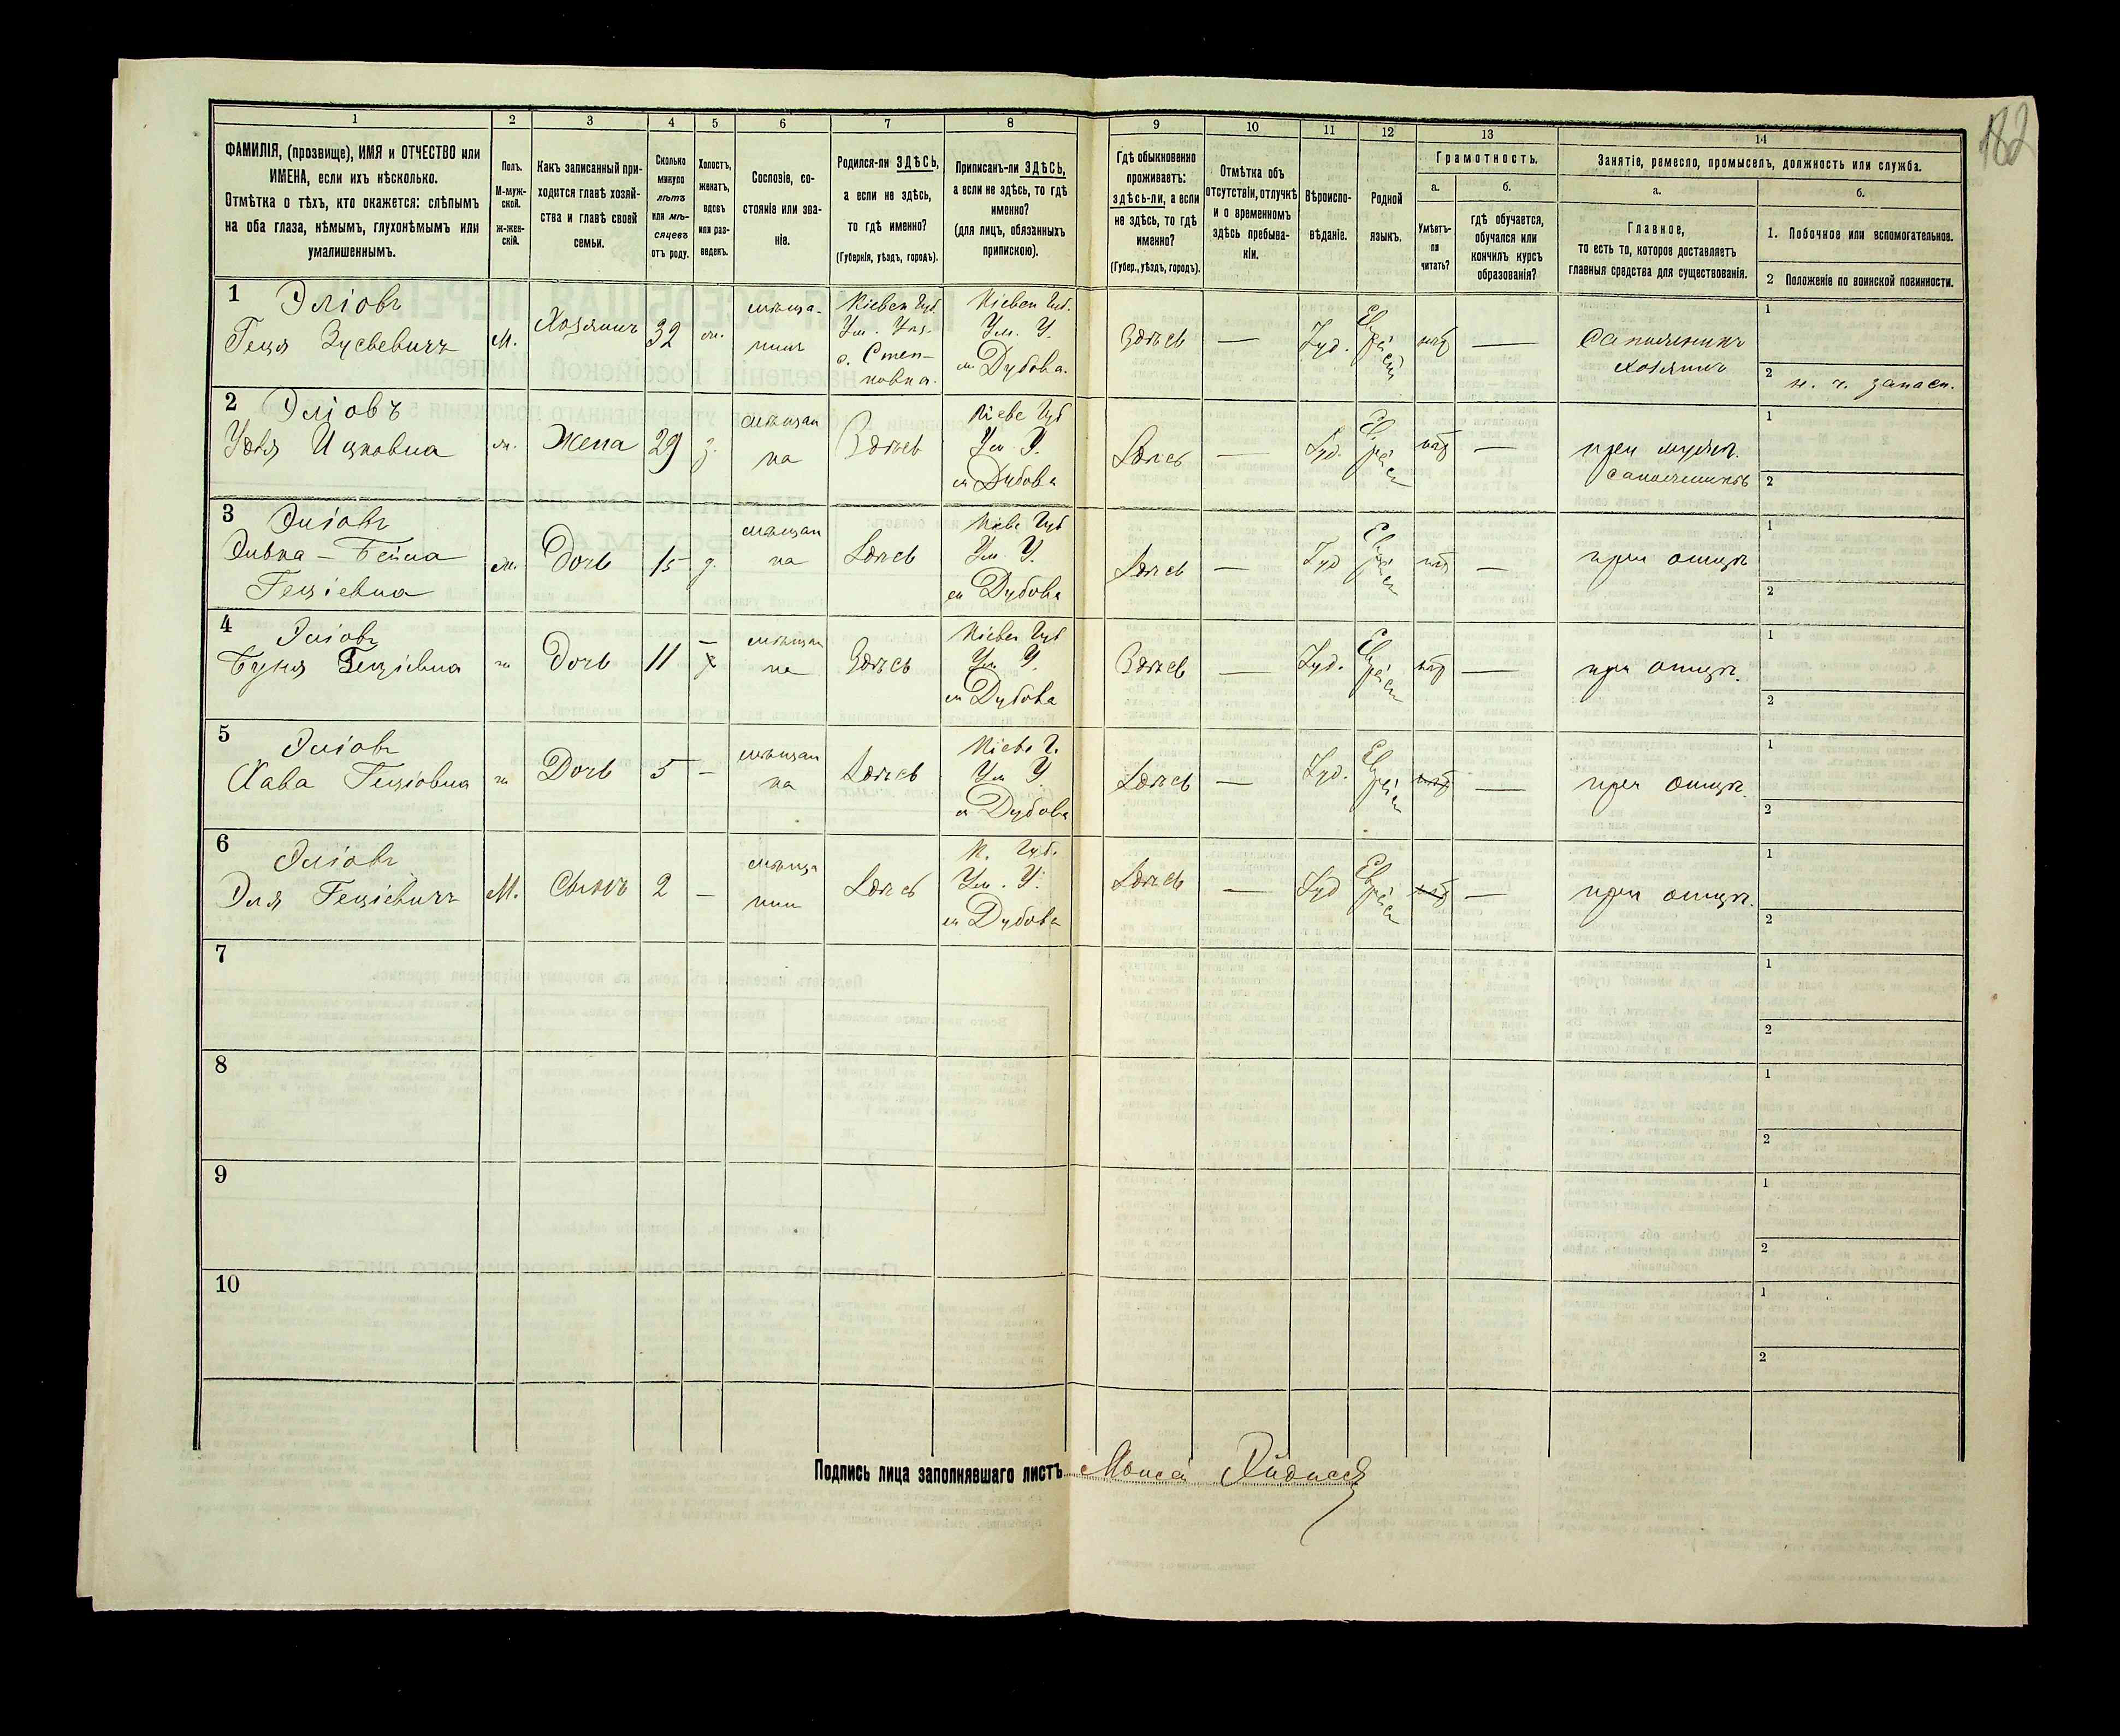 182
1 2 3 4 5 6 7 8 9 10 11 12 13 14
ФАМИЛІЯ, (прозвище), ИМЯ и ОТЧЕСТВО или
ИМЕНА, если ихъ нѣсколько.
Отмѣтка о тѣхъ, кто окажется: слѣпымъ
на оба глаза, нѣмымъ, глухонѣмымъ или
умалишеннымъ.
Полъ.
М-муж-
ской.
ж-жен-
скій.
Какъ записанный при-
ходится главѣ хозяй-
ства и главѣ своей
семьи.
Сколько
минуло
лѣтъ
или мѣ-
сяцевъ
отъ роду.
Холостъ,
женатъ,
вдовъ
или раз-
веденъ.
Сословіе, со-
стояніе или зва-
ніе.
Родился-ли ЗДѢСЬ,
а если не здѣсь,
то гдѣ именно?
(Губернія, уѣздъ, городъ).
Приписанъ-ли ЗДѢСЬ,
а если не здѣсь, то гдѣ
именно?
(для лицъ, обязанныхъ
припискою).
Гдѣ обыкновенно
проживаетъ:
здѣсь-ли, а если
не здѣсь, то гдѣ
именно?
(Губер., уѣздъ, городъ).
Отмѣтка объ
отсутствіи, отлучкѣ
и о временномъ
здѣсь пребыва-
ніи.
Вѣроиспо-
вѣданіе.
Родной
языкъ.
Грамотность.
а.
Умѣетъ-
ли
читать?
б.
гдѣ обучается,
обучался или
кончилъ курсъ
образованія?
Занятіе, ремесло, промыселъ, должность или служба.
а.
Главное,
то есть то, которое доставляетъ
главныя средства для существованія.
б.
1. Побочное или вспомогательное.
2 Положеніе по воинской повинности.
1 Эліовъ
Геця Зусевичъ
М.
Хозяинъ
32
ж.
мѣща-
нинъ
Кіевск Губ.
Ум. Уѣз.
с. Степ-
ковка.
Кіевск Губ.
Ум. У.
м Дубова.
Здѣсь
Іуд.
Еврейс
нѣт
—
Сапожникъ
хозяинъ
1
2 н. ч. запасн.
2 Эліовъ
Ицковна
ж.
Жена
29
з.
мѣщан
ка
Здѣсь
Кіевс Губ
Ум У.
м Дубова
Здѣсь
—
Іуд.
Еврейс
нѣт
—
при мужѣ.
сапожникѣ
1
2
3 Эліовъ
Бейла
Геціевна
ж.
Дочь
15
д.
мѣщан
ка
Здѣсь
Кіевс Губ
Ум У.
м Дубова
Здѣсь
—
Іуд
Еврейс
нѣт
—
при отцѣ
1
2
4 Эліовъ
Геціевна
ж
Дочь
11
—
мѣщан
ка
Здѣсь
Кіевск Губ
Ум У.
м Дубова
Здѣсь
—
Іуд.
Еврейс
нѣт
—
при отцѣ.
1
2
5 Эліовъ
Хава Геціовна
ж
Дочь
5
—
мѣщан
ка
Здѣсь
Кіевс Г.
Ум У
м Дубова
Здѣсь
—
Іуд.
Еврейс
нѣт
—
при отцѣ.
1
2
6 Эліовъ
Эля Геціевичъ
М.
Сынъ
2
—
мѣща
нин
Здѣсь
К. Губ.
Ум. У.
м Дубова
Здѣсь
—
Іуд
Еврейс
нѣт
—
при отцѣ.
1
2
7
1
2
8
1
2
9
1
2
10
1
2
Подпись лица заполнявшаго листъ